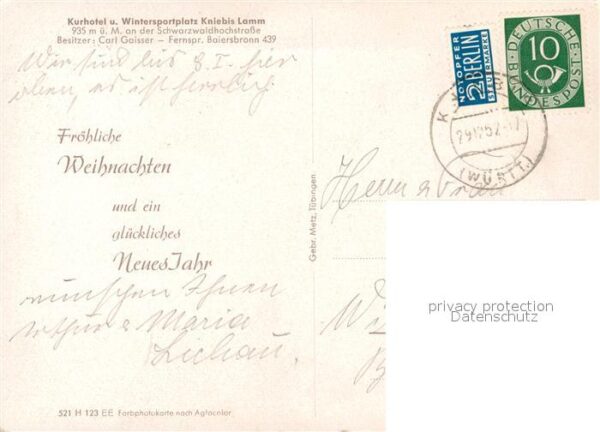 Kurhotel u. Wintersportplatz Kniebis Lamm
935 m ü. M. an der Schwarzwaldhochstraße
Besitzer: Carl Gaisser - Fernspr. Baiersbronn 439
Wir sind bis 8. I. hier
oben, es ist herrlich
Fröhliche
Weihnachten
und ein
glückliches
Neues Jahr
wünschen Ihnen
Maria
Lichau.
521 H 123 EE Farbphotokarte nach Agfacolor
Gebr. Metz, Tübingen
NOTOPFER
2 BERLIN
STEUERMARKE
DEUTSCHE BUNDESPOST
10
(WÜRTT.)
Herrn
privacy protection
Datenschutz